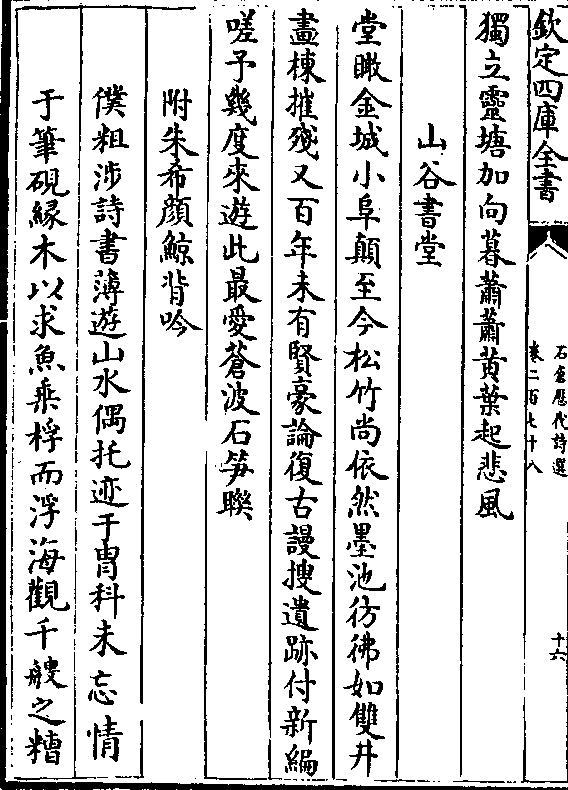 欽定四庫全書
石倉歷代詩選
卷二百七十八
十六
獨立靈塘加向暮蕭蕭黄葉起悲風
山谷書堂
堂瞰金城小阜顛至今松竹尚依然墨池彷彿如雙井
畫棟摧殘又百年未有賢豪論復古謾搜遺跡付新編
嗟予幾度來遊此最愛蒼波石笋聨
附朱希顔鯨背吟
僕粗涉詩書薄遊山水偶托迹于胄科未忘情
于筆硯縁木以求魚乗桴而浮海觀千艘之糟